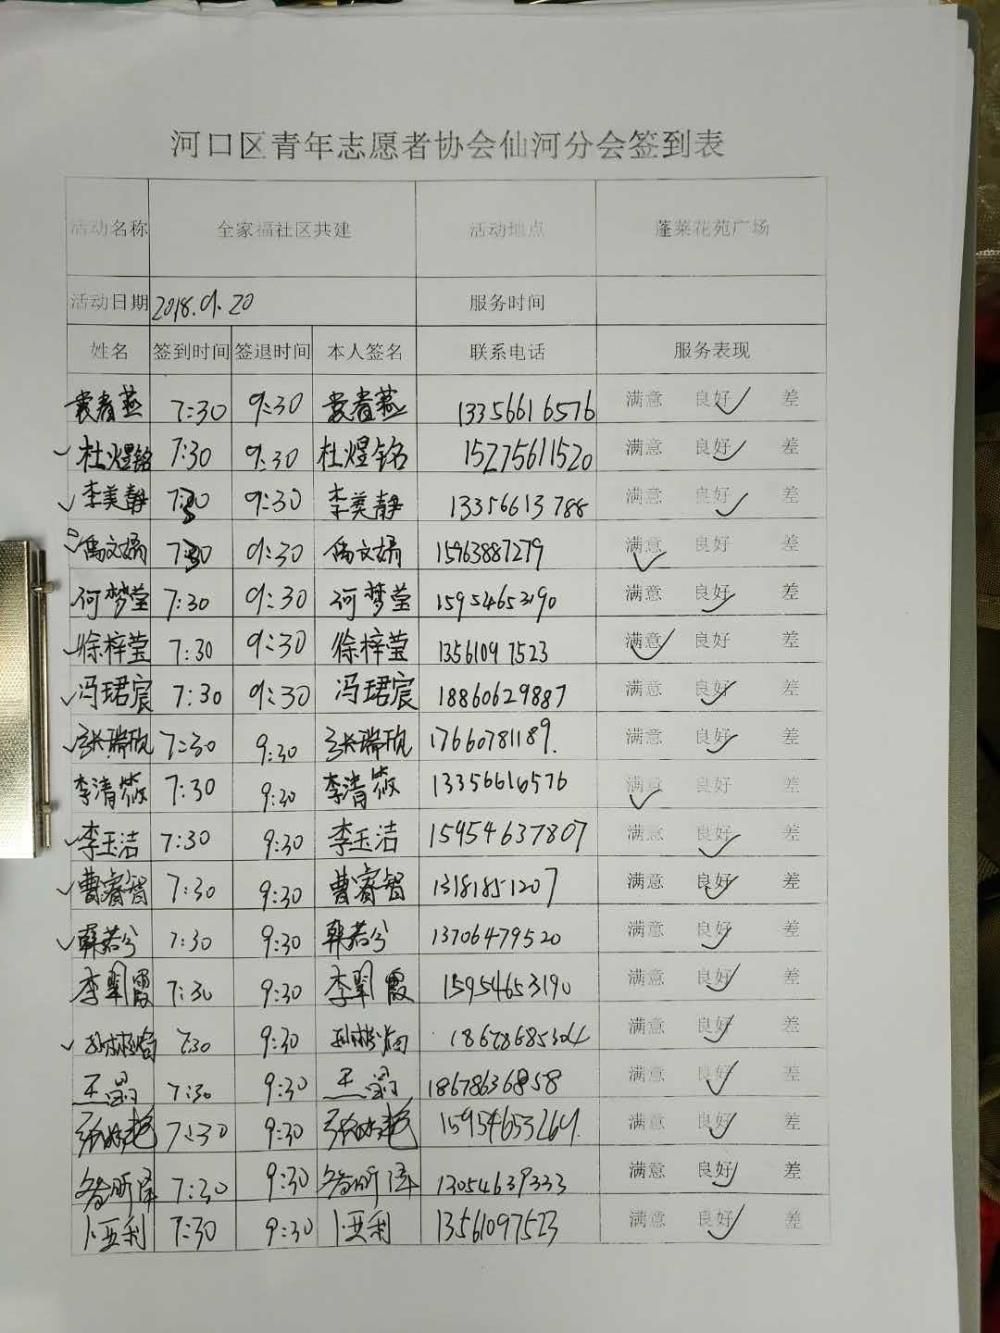 河口区青年志愿者协会仙河分会签到表
活动名称 全家福社区共建 活动地点 蓬莱花苑广场
活动日期 2018.01.20 服务时间
姓名 签到时间 签退时间 本人签名 联系电话 服务表现
袁春燕 7:30 9:30 袁春燕 13356616576 满意 良好 差
杜煜铭 7:30 9:30 杜煜铭 15275611520 满意 良好 差
李美静 7:30 9:30 李美静 13356613788 满意 良好 差
文娟 7:30 9:30 文娟 15963887279 满意 良好 差
何梦莹 7:30 9:30 何梦莹 15954653190 满意 良好 差
徐梓莹 7:30 9:30 徐梓莹 13561097523 满意 良好 差
冯珺宸 7:30 9:30 冯珺宸 18860629887 满意 良好 差
张瑞欣 7:30 9:30 张瑞欣 17660781189. 满意 良好 差
李清筱 7:30 9:30 李清筱 13356616576 满意 良好 差
李玉洁 7:30 9:30 李玉洁 15954637807 满意 良好 差
曹睿智 7:30 9:30 曹睿智 13181851207 满意 良好 差
韩若兮 7:30 9:30 韩若兮 13706479520 满意 良好 差
李翠霞 7:30 9:30 李翠霞 15954653190 满意 良好 差
7:30 9:30 18678685304 满意 良好 差
王 7:30 9:30 王 18678636858 满意 良好 差
张 7:30 9:30 张 15954653264. 满意 良好 差
7:30 9:30 13054639333 满意 良好 差
卜亚利 7:30 9:30 卜亚利 13561097523 满意 良好 差